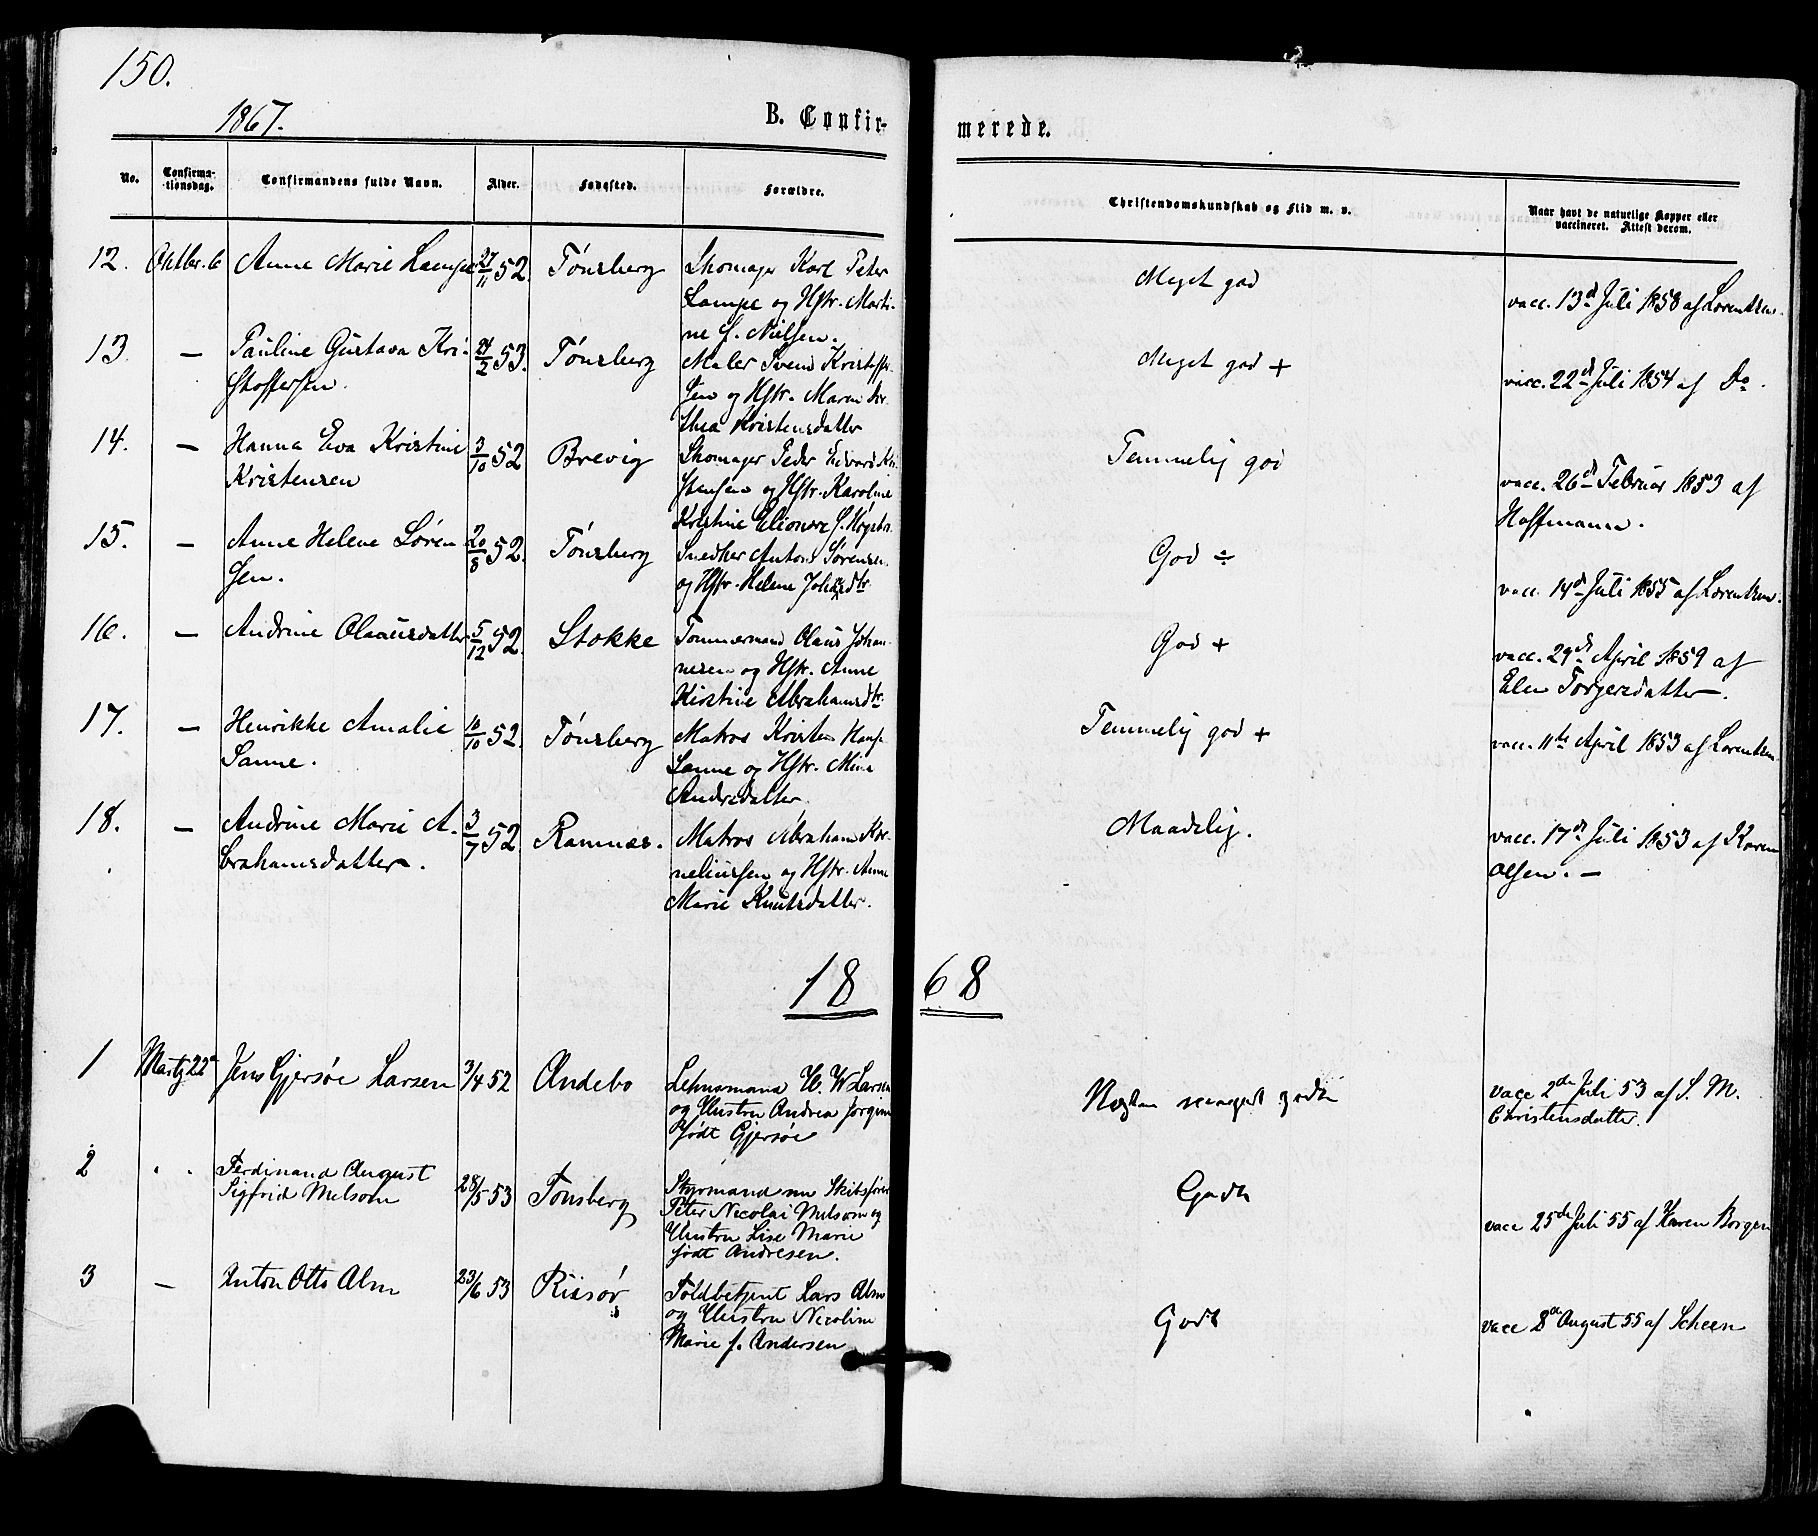 150.
1867.
B. Confir-
merede.
No.
Confirma-
tionsdag.
Confirmandens fulde Navn.
Alder.
Fødested.
Forældre.
Christendomskundskab og Flid m. v.
Naar havt de naturlige Kopper eller
vaccineret. Attest derom.
12. Oktbr. 6 Anne Marie Lampe 27/11 52. Tönsberg Skomager Karl Peter
Lampe og Hstr. Marti-
ne f. Nielsen.
Meget god
vacc. 13d Juli 1858 af Lorentzen.
13. — Pauline Gustava Kri-
stoffersen. 24/2 53. Tönsberg Maler Svend Kristoffer-
sen og Hstr. Maren Dor-
thea Kristensdatter
Meget god +
vacc. 22d Juli 1854 af Do.
14. — Hanna Eva Kristine
Kristensen 3/10 52 Brevig Skomager Peder Edvard Kri-
stensen og Hstr. Karoline
Kristine Elionore f.
Temmelig god
vacc. 26d Februar 1853 af
Hoffmann.
15. — Anne Helene Sören-
sen. 20/8 52. Tönsberg Snedker Anton Sörensen
og Hstr. Helene
God ÷
vacc. 14d Juli 1855 af Lorentzen.
16. — Andrine Olausdatter 5/12 52. Stokke Tömmermand Olaus Johan-
nesen og Hstr. Anne
Kirstine Abrahamsdtr
God +
vacc. 29d April 1859 af
Elen Torgersdatter.
17. — Henrikke Amalie
Sanne. 10/10 52. Tönsberg Matros Kristen Hans.
Sanne og Hstr. Mine
Andrsdatter.
Temmelig god +
vacc. 11te April 1853 af Lorentzen
18. — Andrine Marie A-
brahamsdatter. 3/7 52. Ramnæs. Matros Abraham Kor-
neliussen og Hstr. Anne
Marie Knutsdatter.
Maadelig.
vacc. 17d Juli 1853 af Karen
Olsen. —
1868
1 Martz 22d Jens Gjersøe Larsen 3/4 52 Andebo Lehnsmand H. W Larsen
og Hustru Andrea Jørgine
født Gjersøe
Næsten meget godt
vacc 2den Juli 53 af S. M.
Christensdatter.
2 " " Ferdinand August
Sigfrid Melsom 28/5 53 Tønsberg Styrmand nu Skibsfører
Peter Nicolai Melsom og
Hustru Lise Marie
født Andresen.
Godt
vacc 25de Juli 55 af Karen Borgen
3 — Anton Otto Alm 23/6 53 Riisør Toldbetjent Lars Alm
og Hustru Nicoline
Marie f. Andersen
Godt
vacc 8de August 55 af Scheen